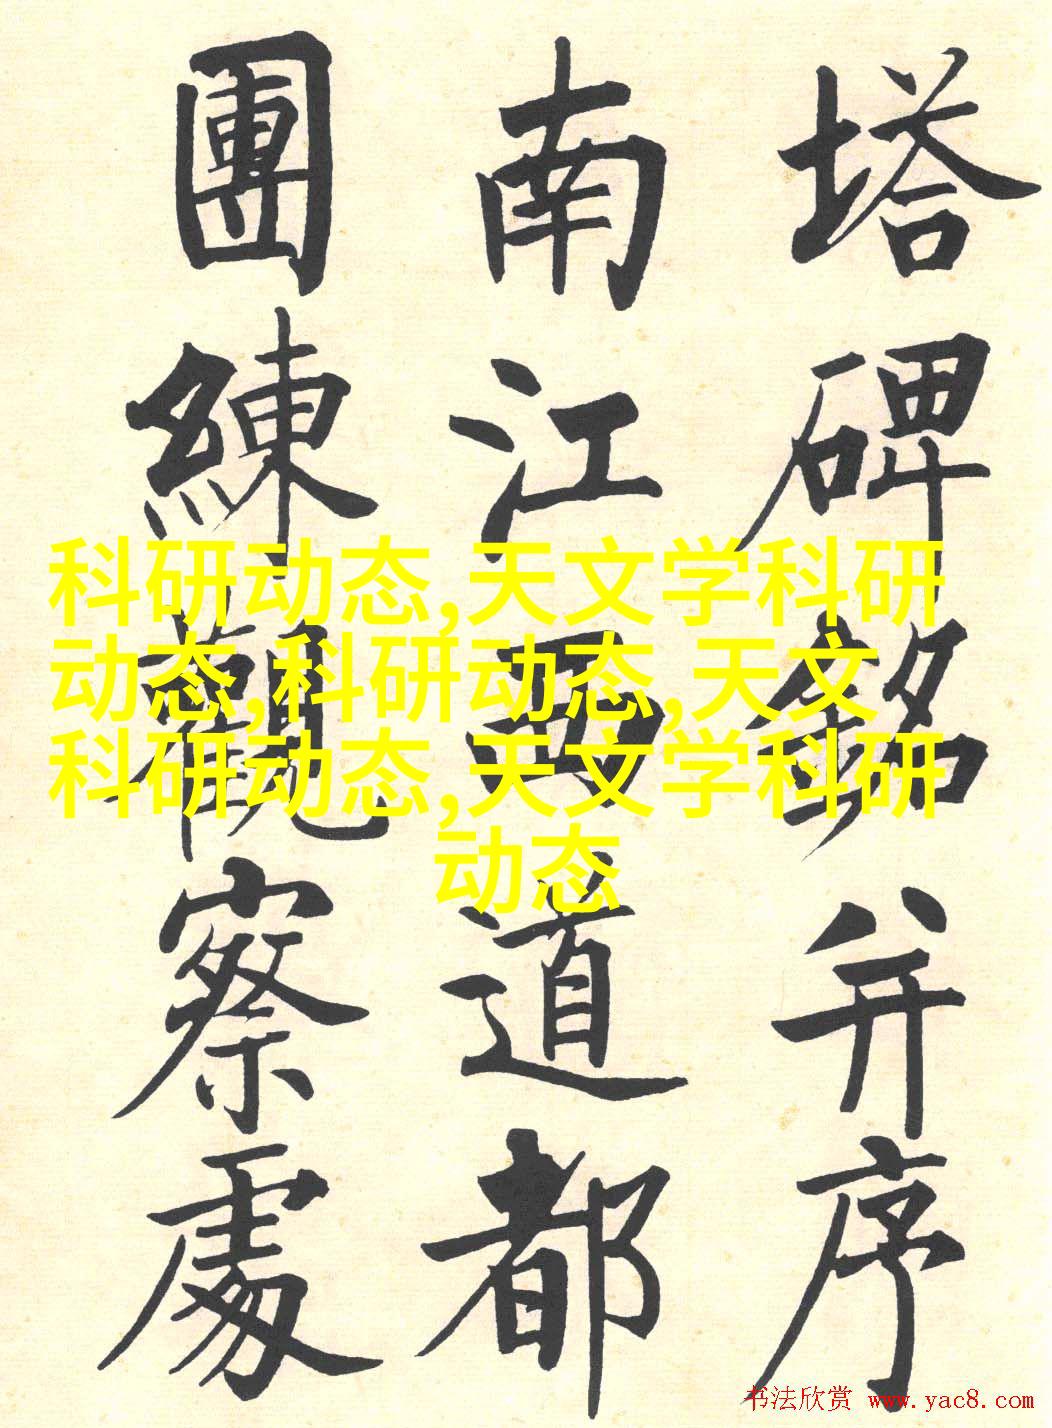 塔碑銘并序
南江西道都
團練觀察處
科研动态,天文学科研
动态,科研动态,天文
科研动态,天文学科研
动态
书法欣赏 www.yac8.com